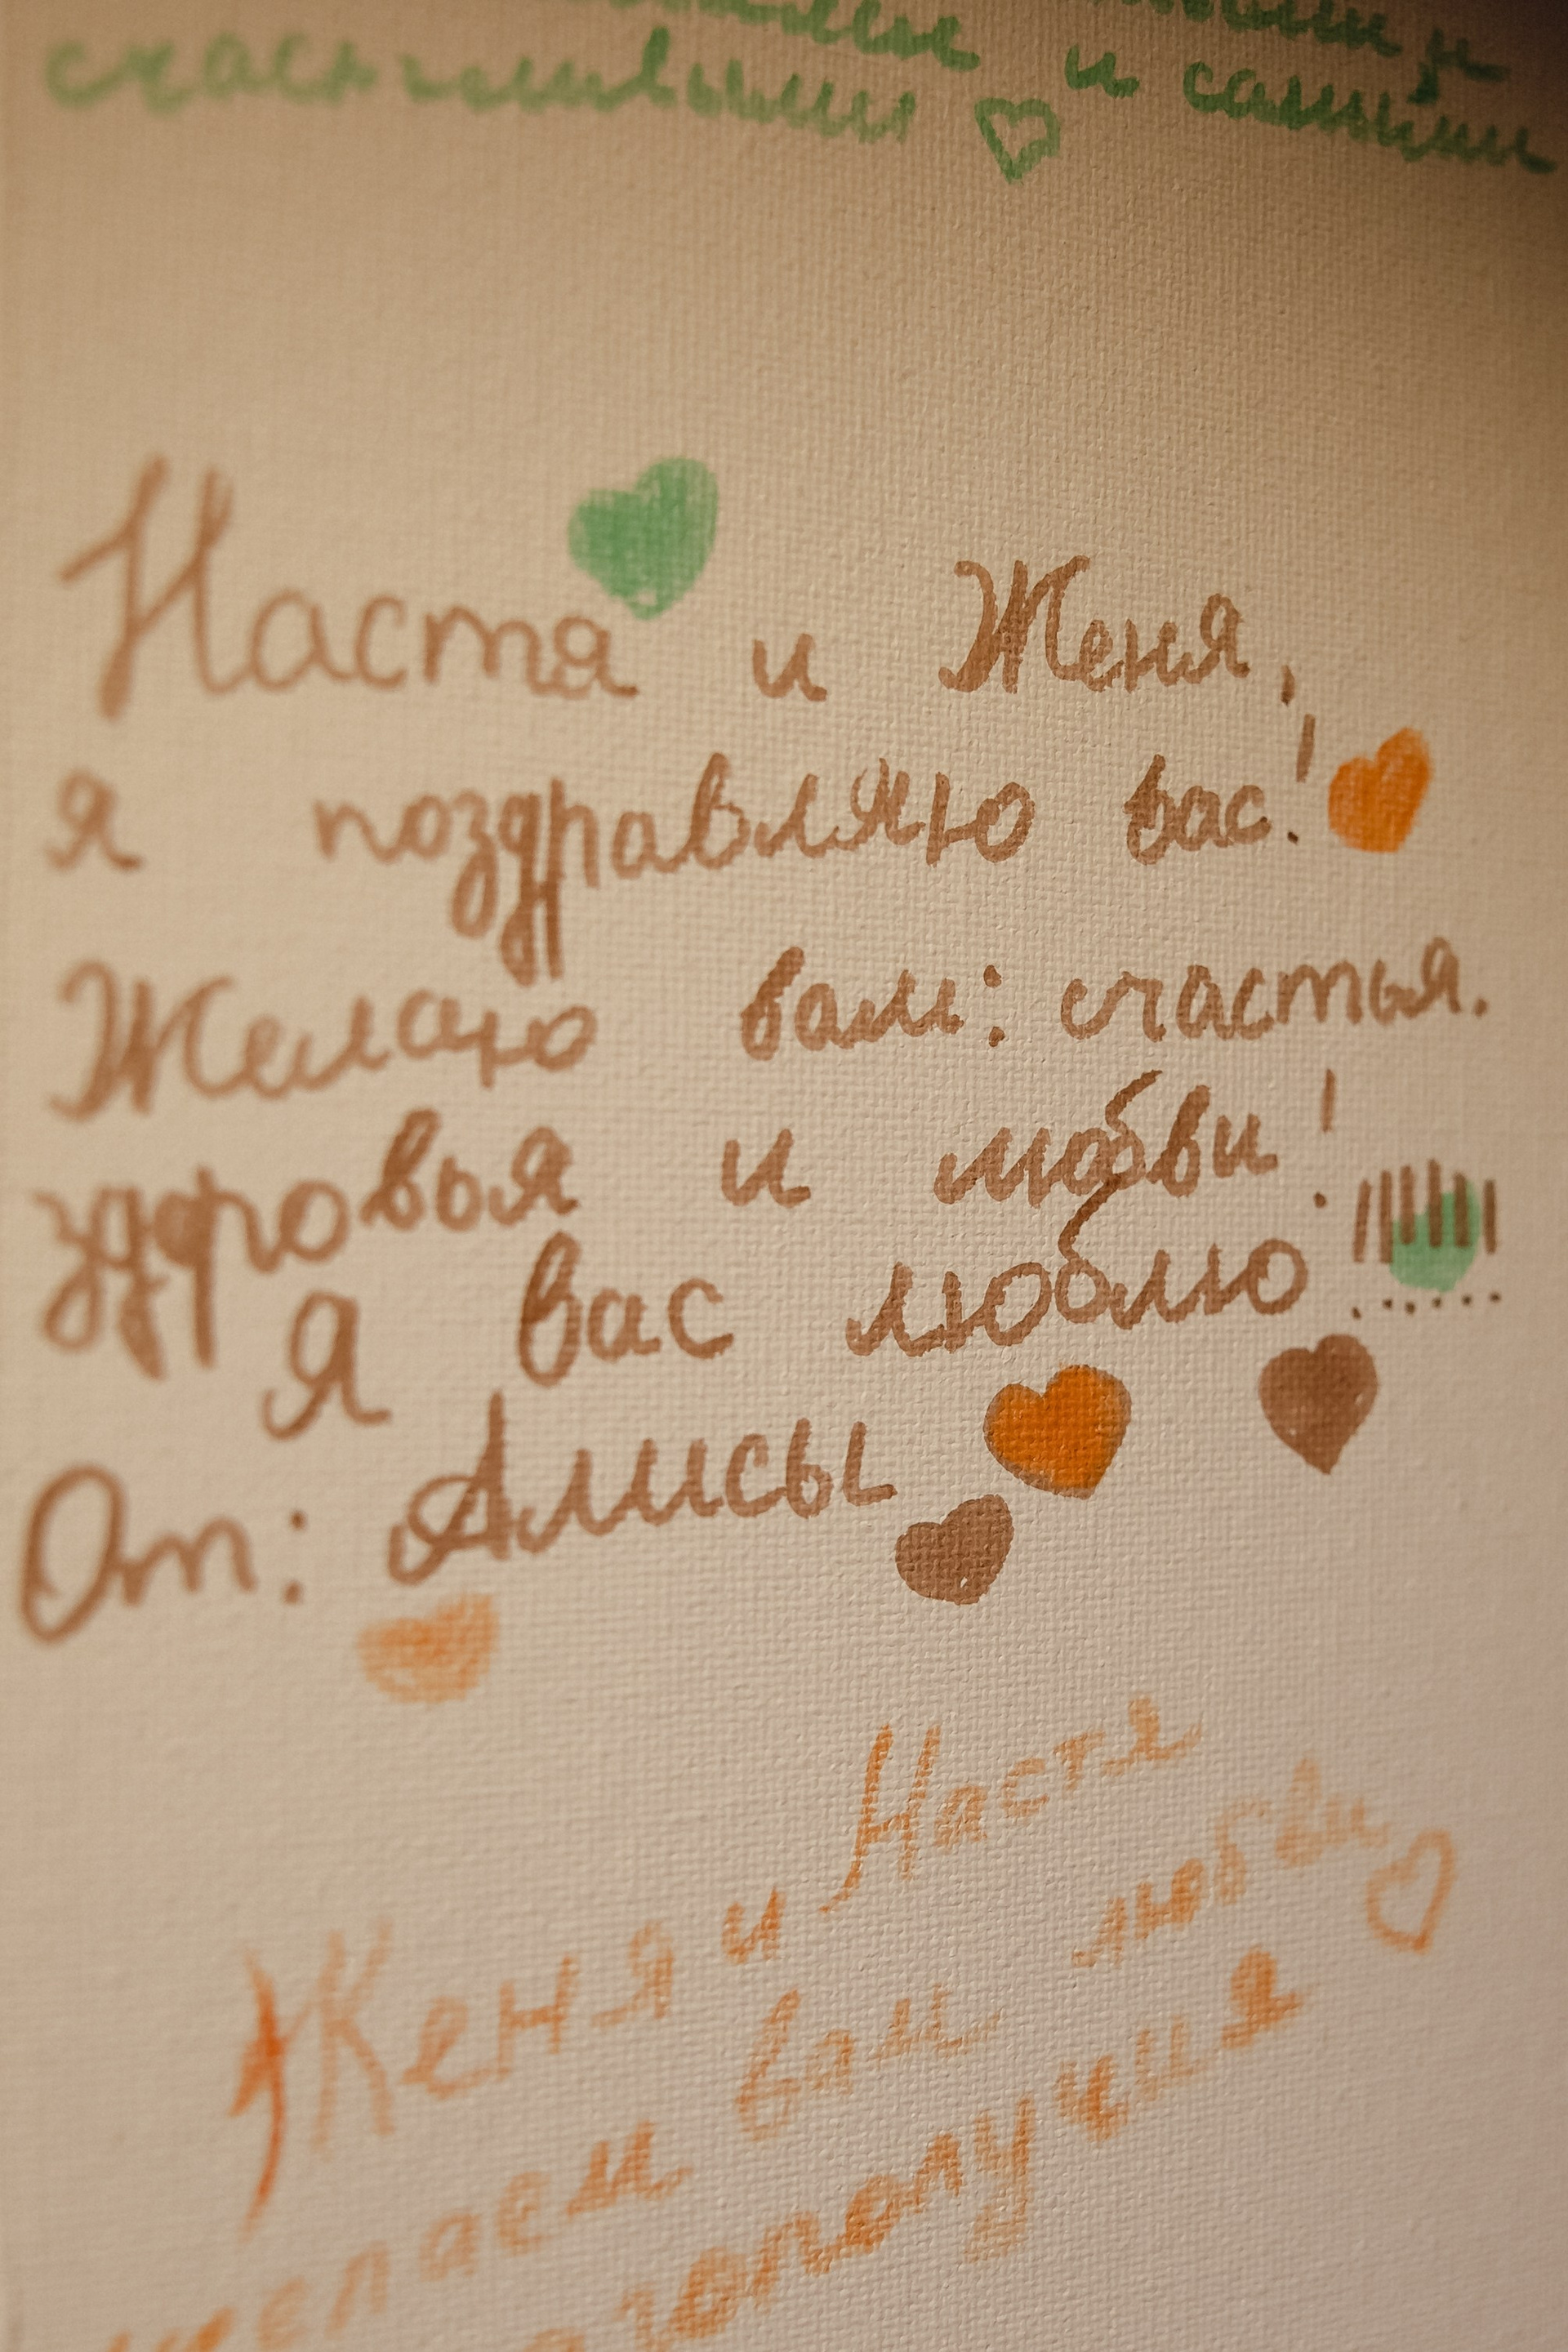 и самыми
счастливыми
Настя и Женя,
я поздравляю вас!
Желаю вам: счастья.
здоровья и любви!
Я вас люблю!!!!!!!
От: Алисы
Женя и Настя
желаем вам любви